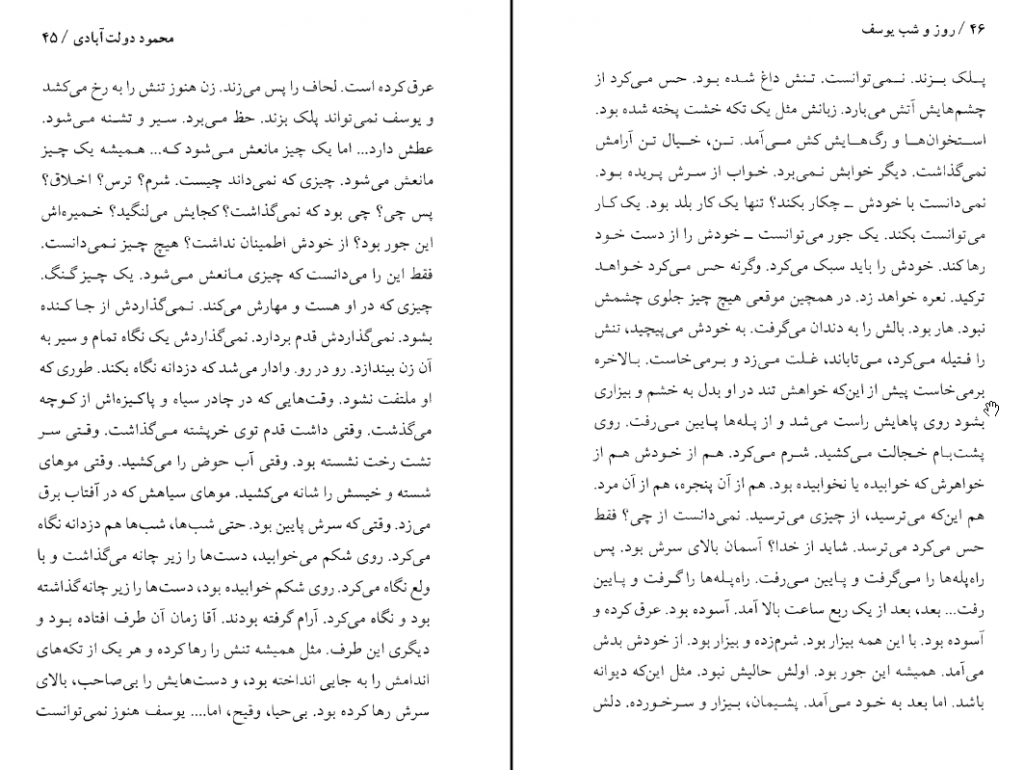 محمود دولت‌آبادی / ۴۵
عرق کرده است. لحاف را پس می‌زند. زن هنوز تنش را به رخ می‌کشد
و یوسف نمی‌تواند پلک بزند. حظ می‌برد. سیر و تشنه می‌شود.
عطش دارد... اما یک چیز مانعش می‌شود که... همیشه یک چیز
مانعش می‌شود. چیزی که نمی‌داند چیست. شرم؟ ترس؟ اخلاق؟
پس چی؟ چی بود که نمی‌گذاشت؟ کجایش می‌لنگید؟ خمیره‌اش
این جور بود؟ از خودش اطمینان نداشت؟ هیچ چیز نمی‌دانست.
فقط این را می‌دانست که چیزی مانعش می‌شود. یک چیز گنگ.
چیزی که در او هست و مهارش می‌کند. نمی‌گذاردش از جا کنده
بشود. نمی‌گذاردش قدم بردارد. نمی‌گذاردش یک نگاه تمام و سیر به
آن زن بیندازد. رو در رو. وادار می‌شد که دزدانه نگاه بکند. طوری که
او ملتفت نشود. وقت‌هایی که در چادر سیاه و پاکیزه‌اش از کوچه
می‌گذشت. وقتی داشت قدم توی خرپشته می‌گذاشت. وقتی سر
تشت رخت نشسته بود. وقتی آب حوض را می‌کشید. وقتی موهای
شسته و خیسش را شانه می‌کشید. موهای سیاهش که در آفتاب برق
می‌زد. وقتی که سرش پایین بود. حتی شب‌ها، شب‌ها هم دزدانه نگاه
می‌کرد. روی شکم می‌خوابید، دست‌ها را زیر چانه می‌گذاشت و با
ولع نگاه می‌کرد. روی شکم خوابیده بود، دست‌ها را زیر چانه گذاشته
بود و نگاه می‌کرد. آرام گرفته بودند. آقا زمان آن طرف افتاده بود و
دیگری این طرف. مثل همیشه تنش را رها کرده و هر یک از تکه‌های
اندامش را به جایی انداخته بود، و دست‌هایش را بی‌صاحب، بالای
سرش رها کرده بود. بی‌حیا، وقیح، اما.... یوسف هنوز نمی‌توانست
۴۶ / روز و شب یوسف
پلک بزند. نمی‌توانست. تنش داغ شده بود. حس می‌کرد از
چشم‌هایش آتش می‌بارد. زبانش مثل یک تکه خشت پخته شده بود.
استخوان‌ها و رگ‌هایش کش می‌آمد. تن، خیال تن آرامش
نمی‌گذاشت. دیگر خوابش نمی‌برد. خواب از سرش پریده بود.
نمی‌دانست با خودش ــ چکار بکند؟ تنها یک کار بلد بود. یک کار
می‌توانست بکند. یک جور می‌توانست ــ خودش را از دست خود
رها کند. خودش را باید سبک می‌کرد. وگرنه حس می‌کرد خواهد
ترکید. نعره خواهد زد. در همچین موقعی هیچ چیز جلوی چشمش
نبود. هار بود. بالش را به دندان می‌گرفت. به خودش می‌پیچید، تنش
را فتیله می‌کرد، می‌تاباند، غلت می‌زد و برمی‌خاست. بالاخره
برمی‌خاست پیش از این‌که خواهش تند در او بدل به خشم و بیزاری
بشود روی پاهایش راست می‌شد و از پله‌ها پایین می‌رفت. روی
پشت‌بام خجالت می‌کشید. شرم می‌کرد. هم از خودش هم از
خواهرش که خوابیده یا نخوابیده بود. هم از آن پنجره، هم از آن مرد.
هم این‌که می‌ترسید، از چیزی می‌ترسید. نمی‌دانست از چی؟ فقط
حس می‌کرد می‌ترسد. شاید از خدا؟ آسمان بالای سرش بود. پس
راه‌پله‌ها را می‌گرفت و پایین می‌رفت. راه‌پله‌ها را گرفت و پایین
رفت... بعد، بعد از یک ربع ساعت بالا آمد. آسوده بود. عرق کرده و
آسوده بود. با این همه بیزار بود. شرم‌زده و بیزار بود. از خودش بدش
می‌آمد. همیشه این جور بود. اولش حالیش نبود. مثل این‌که دیوانه
باشد. اما بعد به خود می‌آمد. پشیمان، بیزار و سرخورده. دلش